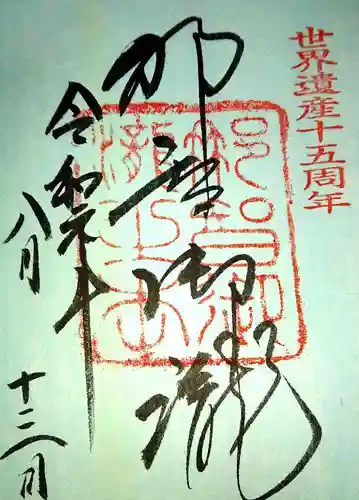 世界遺産十五周年
那智御瀧
令和元年
八月
十二日